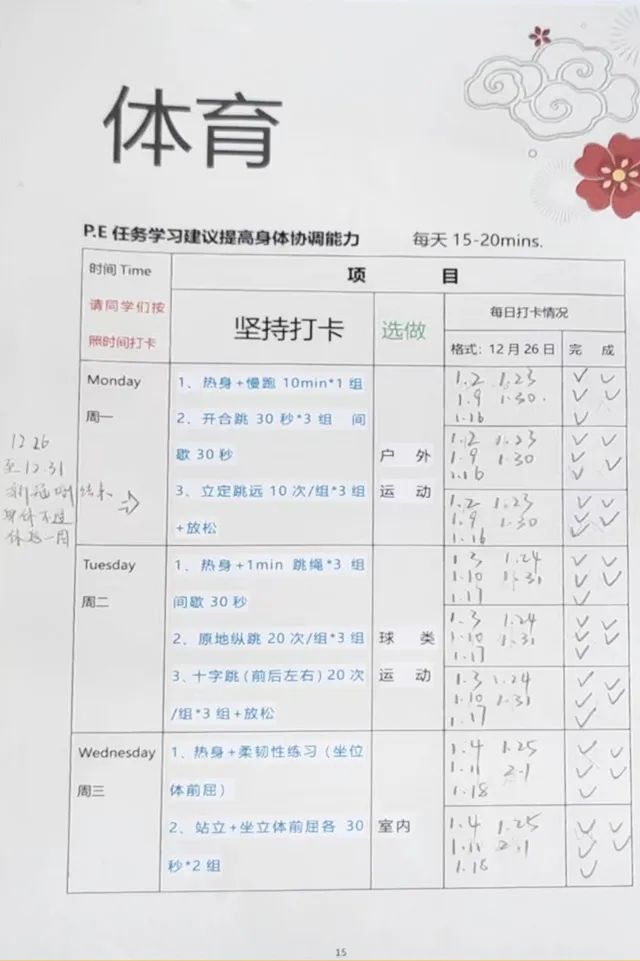 体育
P.E 任务学习建议提高身体协调能力 每天 15-20mins.
时间 Time
请同学们按
照时间打卡
项 目
坚持打卡
选做
每日打卡情况
格式：12月26日 完 成
Monday
周一
1、热身+慢跑 10min*1 组
2、开合跳 30 秒*3 组 间
歇 30 秒
3、立定跳远 10 次/组*3 组
+放松
户 外
运 动
1.2 1.23 ✓ ✓
1.9 1.30. ✓ ✓
1.16 ✓
1.2 1.23 ✓ ✓
1.9 1.30 ✓ ✓
1.16 ✓
1.2 1.23 ✓ ✓
1.9 1.30 ✓ ✓
1.16 ✓
12 26
至 12.31
结束
休息一周
Tuesday
周二
1、热身+1min 跳绳*3 组
间歇 30 秒
2、原地纵跳 20 次/组*3 组
3、十字跳（前后左右）20 次
/组*3 组+放松
球 类
运 动
1.3 1.24 ✓ ✓
1.10 1.31 ✓ ✓
1.17 ✓
1.3 1.24 ✓ ✓
1.10 1.31 ✓ ✓
1.17 ✓
1.3 1.24 ✓ ✓
1.10 1.31 ✓ ✓
1.17 ✓
Wednesday
周三
1、热身+柔韧性练习（坐位
体前屈）
2、站立+坐立体前屈各 30
秒*2 组
室内
1.4 1.25 ✓ ✓
1.11 2.1 ✓ ✓
1.18 ✓
1.4 1.25 ✓ ✓
1.11 2.1 ✓ ✓
1.18 ✓
15